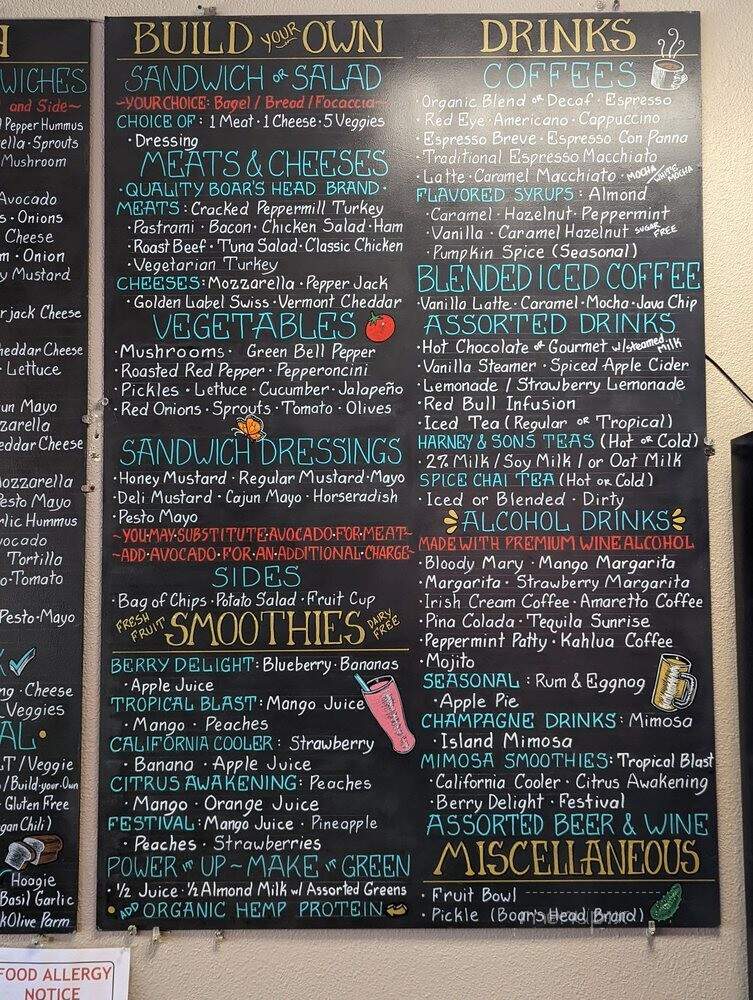 H
WICHES
and Side~
Pepper Hummus
ella · Sprouts
Mushroom
Avocado
s · Onions
Cheese
m · Onion
y Mustard
rjack Cheese
heddar Cheese
· Lettuce
un Mayo
zzarella
eddar Cheese
Mozzarella
Pesto Mayo
rlic Hummus
vocado
Tortilla
o · Tomato
Pesto · Mayo
K
ng · Cheese
Veggies
AL ·
LT / Veggie
/ Build-your-Own
Gluten Free
gan Chili)
Hoagie
Basil Garlic
kOlive Parm
FOOD ALLERGY
NOTICE
BUILD YOUR OWN
SANDWICH OR SALAD
~YOUR CHOICE: Bagel / Bread / Focaccia~
CHOICE OF: 1 Meat · 1 Cheese · 5 Veggies
· Dressing
MEATS & CHEESES
· QUALITY BOAR'S HEAD BRAND ·
MEATS: Cracked Peppermill Turkey
· Pastrami · Bacon · Chicken Salad · Ham
· Roast Beef · Tuna Salad · Classic Chicken
· Vegetarian Turkey
CHEESES: Mozzarella · Pepper Jack
· Golden Label Swiss · Vermont Cheddar
VEGETABLES
· Mushrooms · Green Bell Pepper
· Roasted Red Pepper · Pepperoncini
· Pickles · Lettuce · Cucumber · Jalapeño
· Red Onions · Sprouts · Tomato · Olives
SANDWICH DRESSINGS
· Honey Mustard · Regular Mustard · Mayo
· Deli Mustard · Cajun Mayo · Horseradish
· Pesto Mayo
~YOU·MAY·SUBSTITUTE·AVOCADO·FOR·MEAT~
~ADD·AVOCADO·FOR·AN·ADDITIONAL·CHARGE~
SIDES
· Bag of Chips · Potato Salad · Fruit Cup
FRESH FRUIT SMOOTHIES DAIRY FREE
BERRY DELIGHT: Blueberry · Bananas
· Apple Juice
TROPICAL BLAST: Mango Juice
· Mango · Peaches
CALIFORNIA COOLER: Strawberry
· Banana · Apple Juice
CITRUS AWAKENING: Peaches
· Mango · Orange Juice
FESTIVAL: Mango Juice · Pineapple
· Peaches · Strawberries
POWER IT UP ~ MAKE IT GREEN
· ½ Juice · ½ Almond Milk w/ Assorted Greens
· ADD ORGANIC HEMP PROTEIN
DRINKS
COFFEES
· Organic Blend OR Decaf · Espresso
· Red Eye · Americano · Cappuccino
· Espresso Breve · Espresso Con Panna
· Traditional Espresso Macchiato
· Latte · Caramel Macchiato · MOCHA / WHITE MOCHA
FLAVORED SYRUPS: Almond
· Caramel · Hazelnut · Peppermint
· Vanilla · Caramel Hazelnut SUGAR FREE
· Pumpkin Spice (Seasonal)
BLENDED ICED COFFEE
· Vanilla Latte · Caramel · Mocha · Java Chip
ASSORTED DRINKS
· Hot Chocolate OR Gourmet w/steamed Milk
· Vanilla Steamer · Spiced Apple Cider
· Lemonade / Strawberry Lemonade
· Red Bull Infusion
· Iced Tea (Regular OR Tropical)
HARNEY & SONS TEAS (Hot OR Cold)
· 2% Milk / Soy Milk / or Oat Milk
SPICE CHAI TEA (Hot OR Cold)
· Iced or Blended · Dirty
ALCOHOL DRINKS
MADE WITH PREMIUM WINE ALCOHOL
· Bloody Mary · Mango Margarita
· Margarita · Strawberry Margarita
· Irish Cream Coffee · Amaretto Coffee
· Pina Colada · Tequila Sunrise
· Peppermint Patty · Kahlua Coffee
· Mojito
SEASONAL: Rum & Eggnog
· Apple Pie
CHAMPAGNE DRINKS: Mimosa
· Island Mimosa
MIMOSA SMOOTHIES: Tropical Blast
· California Cooler · Citrus Awakening
· Berry Delight · Festival
ASSORTED BEER & WINE
MISCELLANEOUS
· Fruit Bowl
· Pickle (Boar's Head Brand)